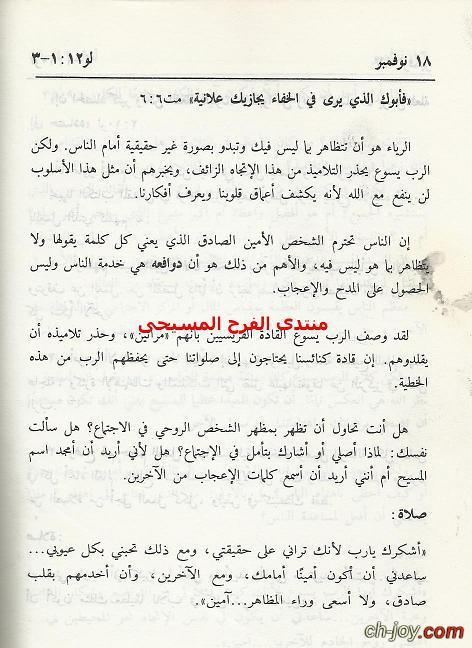 ١٨ نوفمبر لو١٢: ١-٣
«فأبوك الذي يرى في الخفاء يجازيك علانية» مت٦: ٦
الرياء هو أن تتظاهر بما ليس فيك وتبدو بصورة غير حقيقية أمام الناس. ولكن
الرب يسوع يحذر التلاميذ من هذا الإتجاه الزائف، ويخبرهم أن مثل هذا الأسلوب
لن ينفع مع الله لأنه يكشف أعماق قلوبنا ويعرف أفكارنا.
إن الناس تحترم الشخص الأمين الصادق الذي يعني كل كلمة يقولها ولا
يتظاهر بما هو ليس فيه، والأهم من ذلك هو أن دوافعه هي خدمة الناس وليس
الحصول على المدح والإعجاب.
منتدى الفرح المسيحى
لقد وصف الرب يسوع القادة الفريسيين بأنهم «مرائين»، وحذر تلاميذه أن
يقلدوهم. إن قادة كنائسنا يحتاجون إلى صلواتنا حتى يحفظهم الرب من هذه
الخطية.
هل أنت تحاول أن تظهر بمظهر الشخص الروحي في الاجتماع؟ هل سألت
نفسك: لماذا أصلي أو أشارك بتأمل في الإجتماع؟ هل لأني أريد أن أمجد اسم
المسيح أم أنني أريد أن أسمع كلمات الإعجاب من الآخرين.
صلاة:
«أشكرك يارب لأنك تراني على حقيقتي، ومع ذلك تحبني بكل عيوبي...
ساعدني أن أكون أمينًا أمامك، ومع الآخرين، وأن أخدمهم بقلب
صادق، ولا أسعى وراء المظاهر...آمين».
ch-joy.com